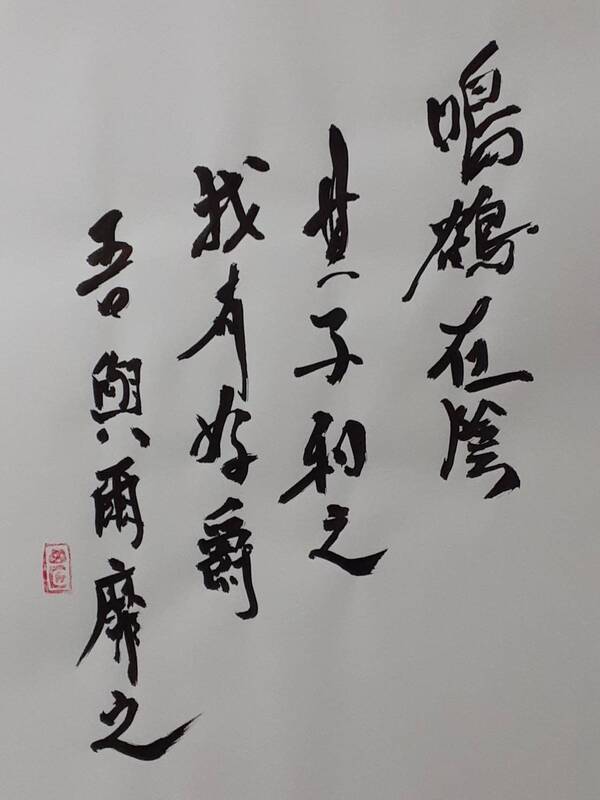 鳴鶴在陰
其子和之
我有好爵
吾與爾靡之